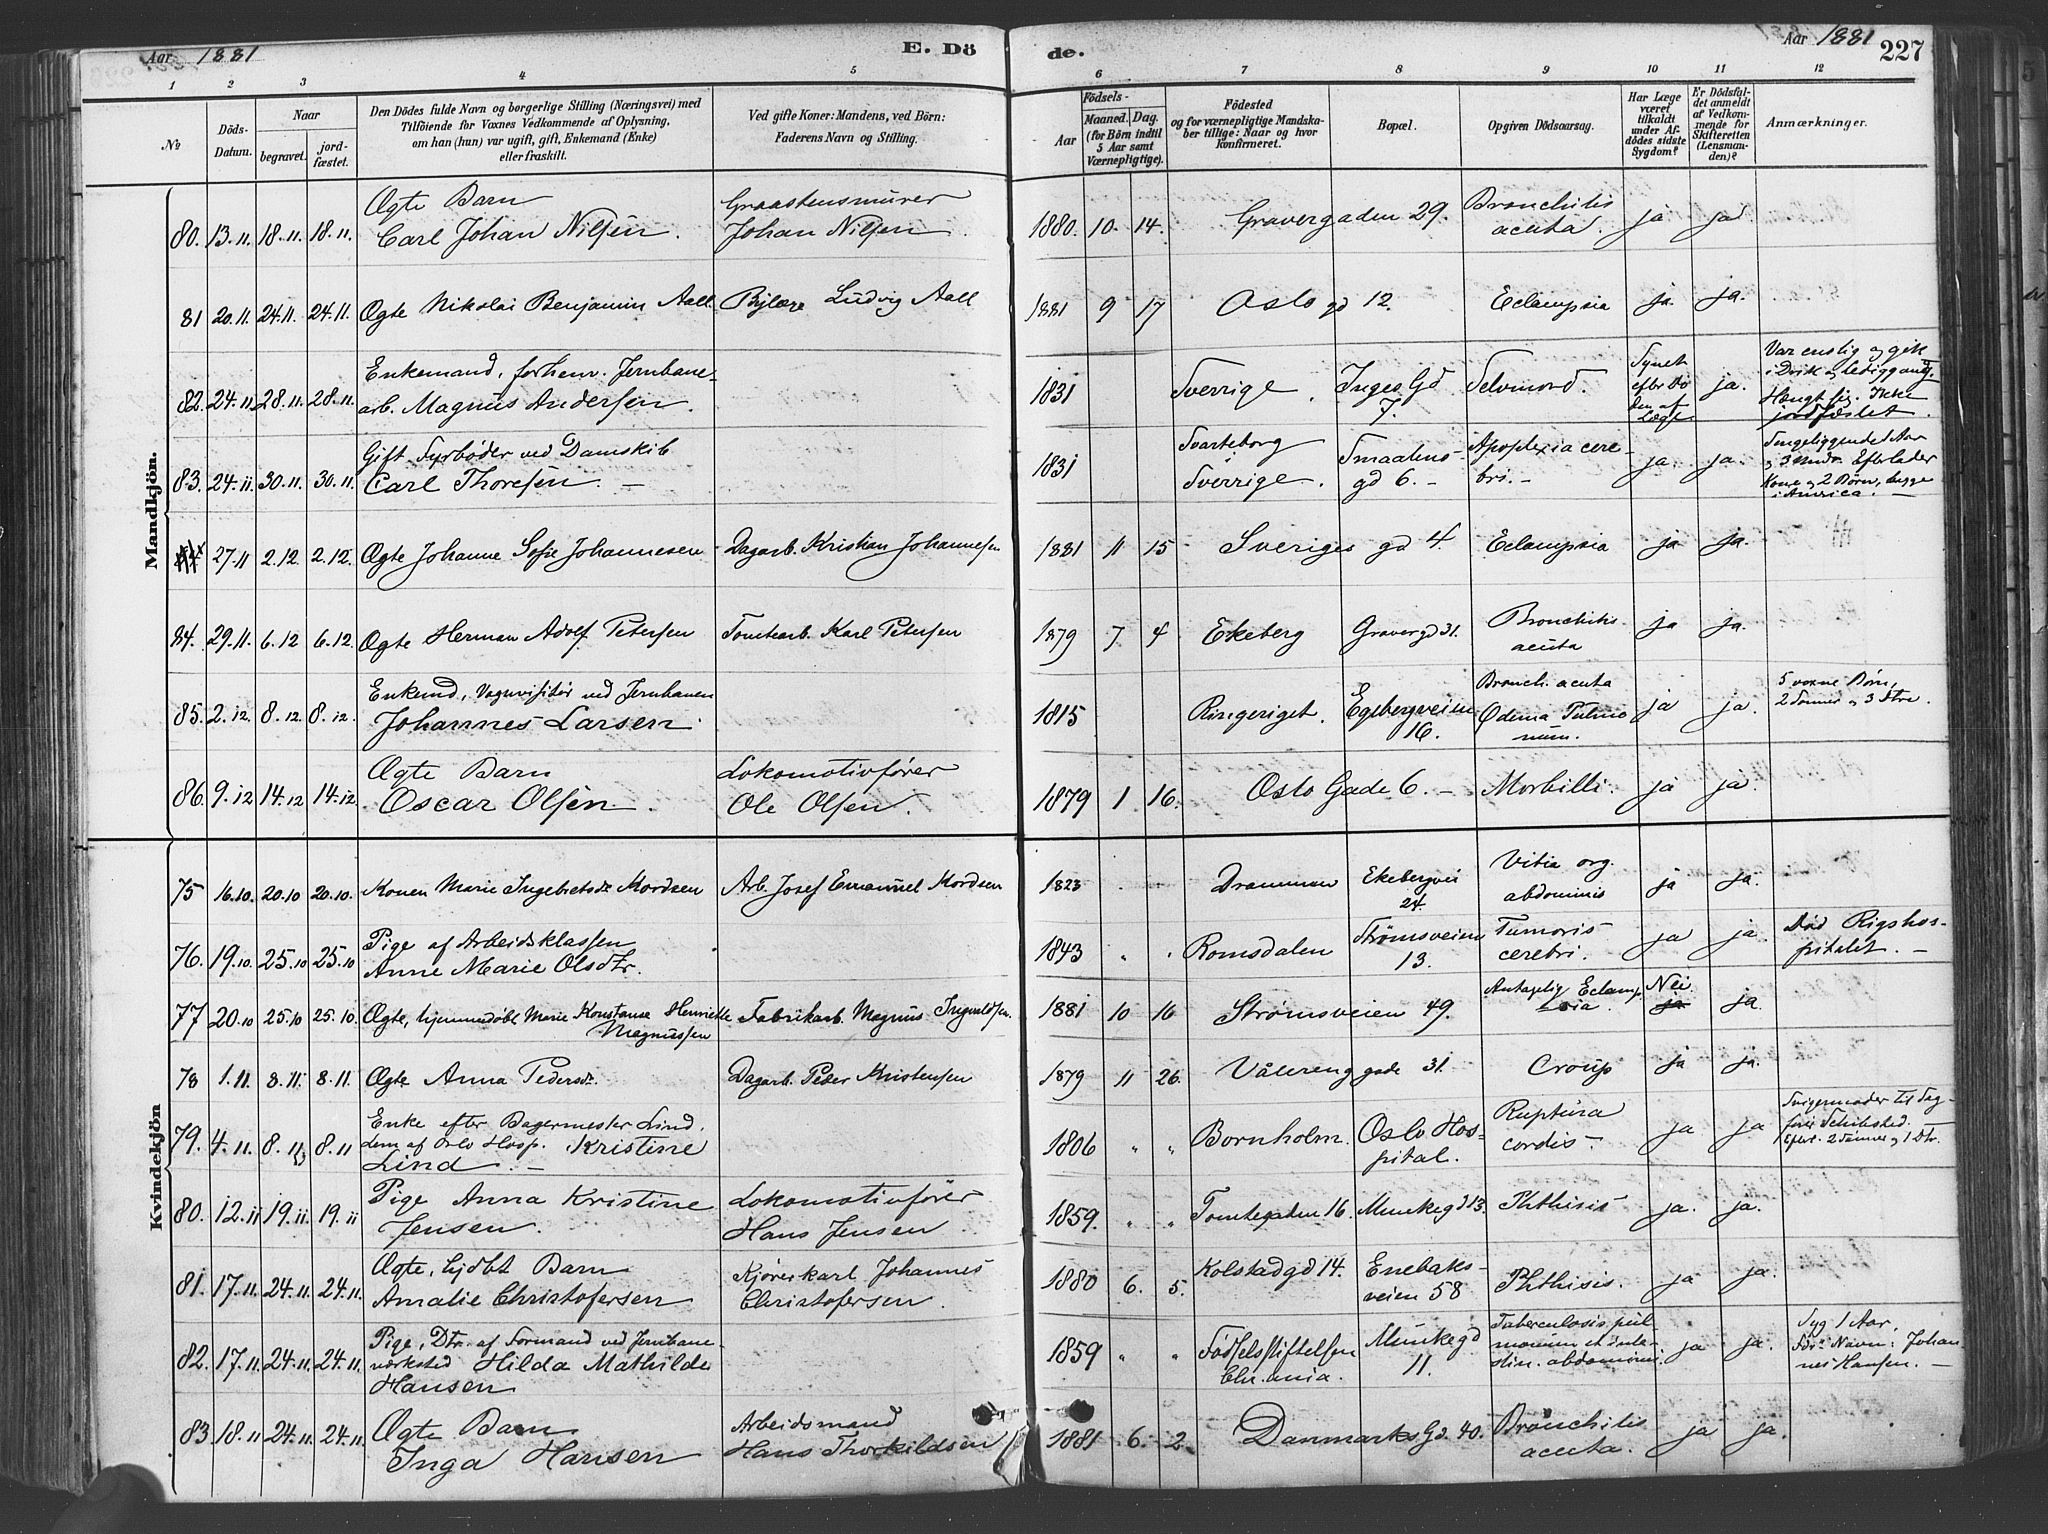 Aar 1881
E. Dö
de.
Aar 1881
227
1 2 3 4 5 6 7 8 9 10 11 12
№
Döds-Datum.
Naar
begravet.
jordfæstet.
Den Dödes fulde Navn og borgerlige Stilling (Næringsvei) med
Tilföiende for Voxnes Vedkommende af Oplysning,
om han (hun) var ugift, gift, Enkemand (Enke)
eller fraskilt.
Ved gifte Koner: Mandens, ved Börn:
Faderens Navn og Stilling.
Födsels-
Aar
Maaned. Dag.
(for Börn indtil
5 Aar samt
Værnepligtige).
Födested
og for værnepligtige Mandskaber tillige: Naar og hvor
konfirmeret.
Bopæl.
Opgiven Dödsaarsag.
Har Læge
været
tilkaldt
under Afdödes sidste
Sygdom?
Er Dödsfaldet anmeldt
af Vedkommende for
Skifteretten
(Lensmanden)?
Anmærkninger.
Mandkjön.
80. 13.11. 18.11. 18.11. Ægte Barn Carl Johan Nilsen. Graastensmurer Johan Nilsen 1880. 10. 14. Gravergaden 29. Bronchitis acuta. ja ja
81 20.11. 24.11. 24.11. Ægte Nikolai Benjamin Aall Ludvig Aall 1881 9 17 Oslo gd 12. Eclampsia ja. ja.
82. 24.11. 28.11. 28.11. Enkemand, forhenv. Jernbanearb. Magnus Andersen. 1831 Sverrige. Inges Gd 7. Selvmord. Synet efter Døden af Læge. ja. Var enslig og gik i Drik og lediggang. Hængt sig. Ikke jordfæstet.
83. 24.11. 30.11. 30.11. Gift Fyrbøder ved Damskib Carl Thoresen. — 1831 Svarteborg Sverrige. Smaalensgd 6. — Apoplexia cerebri. — ja. ja. Sengeliggende 1 Aar og 3 Mdr. Efterlader Kone og 2 Børn, begge i America. —
27.11 2.12 2.12. Ægte Johanne Sofie Johannesen Dagarb. Kristian Johannesen 1881 11 15 Sveriges gd 4. Eclampsia ja ja.
84. 29.11. 6.12 6.12. Ægte Herman Adolf Petersen Tomtearb. Karl Petersen 1879 7 4 Ekeberg Gravergd 31. Bronchitis acuta ja ja.
85. 2.12. 8.12. 8.12. Enkemd, Vognvisitør ved Jernbanen Johannes Larsen. 1815 Ringeriget. Egebergveien 16. Bronch. acuta Ødema Pulmonum. ja ja. 5 voxne Børn, 2 Sønner og 3 Døtre.
86. 9.12 14.12 14.12. Ægte Barn Oscar Olsen. Lokomotivfører Ole Olsen. 1879 1 16. Oslo Gade 6. — Morbilli. ja ja.
Kvindekjön
75 16.10. 20.10 20.10. Konen Marie Ingebretsdr. Mordsen Arb. Josef Emanuel Mordsen 1823 Drammen Ekebergvei 24. Vitia org. abdominis ja ja.
76. 19.10. 25.10 25.10 Pige af Arbeidsklassen Anne Marie Olsdtr. 1843 " " Romsdalen Strømsveien 13. Tumoris cerebri. ja ja. Død Rigshospitalet. —
77 20.10 25.10 25.10. Ægte, hjemmedøbt Marie Konstanse Henriette Magnussen Fabrikarb. Magnus Ingvaldsen. 1881 10 16 Strømsveien 49. Antagelig Eclampsia. Nei. ja ja.
78 1.11. 8.11. 8.11. Ægte Anna Pedersdr. Dagarb. Peder Kristensen 1879 11 26. Vålereng gade 31. Croup ja ja.
79. 4.11. 8.11 8.11 Enke efter Bagermester Lind, Lem af Oslo Hosp. Kristine Lind. — 1806 " " Bornholm. Oslo Hospital. Ruptura cordis — ja ja Svigermoder til Sagfører Schibsted. Efterl. 2 Sønner og 1 Dtr.
80. 12.11 19.11 19.11 Pige Anna Kristine Jensen. Lokomotivfører Hans Jensen. 1859. " " Tomtegaden 16. Munkegd 13. Phthisis ja. ja.
81. 17.11. 24.11. 24.11. Ægte, hjdbt Barn Amalie Christofersen Kjørerkarl Johannes Christofersen. 1880 6. 5. Kolstadgd 14. Enebaksveien 58 Phthisis. ja ja.
82. 17.11. 24.11. 24.11. Pige, Dtr. af Formand ved Jernbaneværksted Hilda Mathilde Hansen 1859 " " Fødselsstiftelsen Chr.ania. Munkegd 11. Tuberculosis pulmonum et intestin. abdominis. ja ja. Syg 1 Aar. Navn: Johannes Hansen. —
83. 18.11 24.11. 24.11. Ægte Barn Inga Hansen Arbeidsmand Hans Thorkildsen 1881 6. 2. Danmarks Gd. 40. Bronchitis acuta. ja ja.